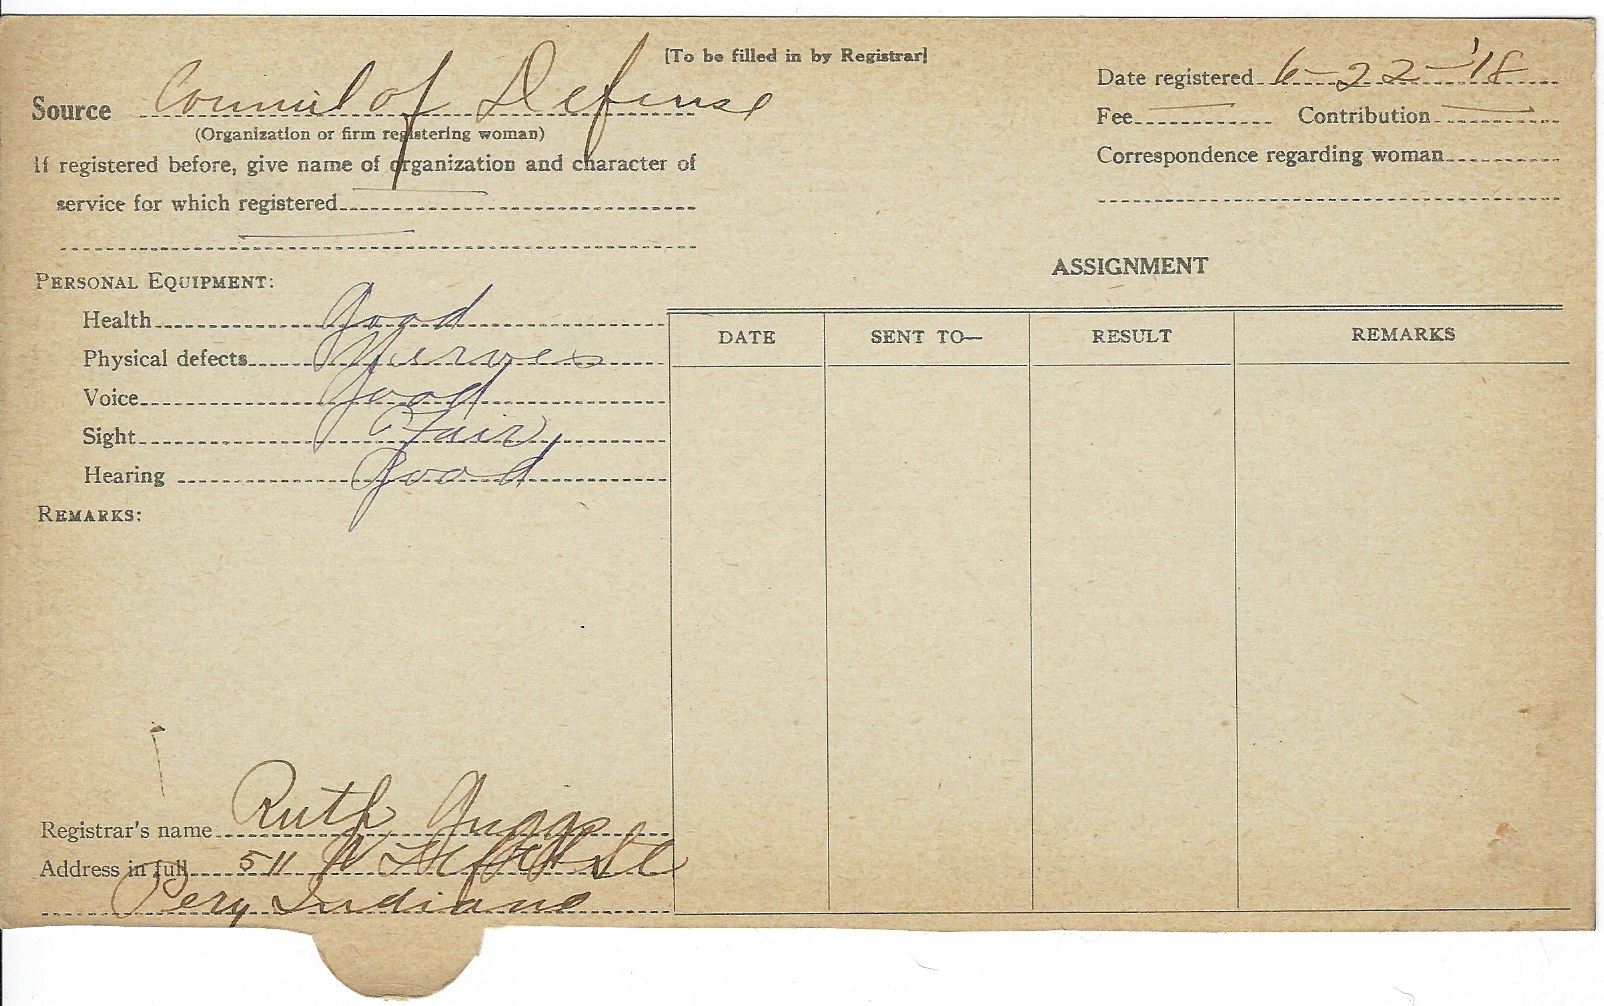 [To be filled in by Registrar]
Source Council of Defense
(Organization or firm registering woman)
If registered before, give name of organization and character of
service for which registered
Date registered 6-22-'18
Fee Contribution
Correspondence regarding woman
PERSONAL EQUIPMENT:
Health Good
Physical defects Nerves
Voice Good
Sight Fair,
Hearing Good
REMARKS:
ASSIGNMENT
DATE SENT TO— RESULT REMARKS
Registrar's name Ruth
Address in full 511 W
Peru Indiana